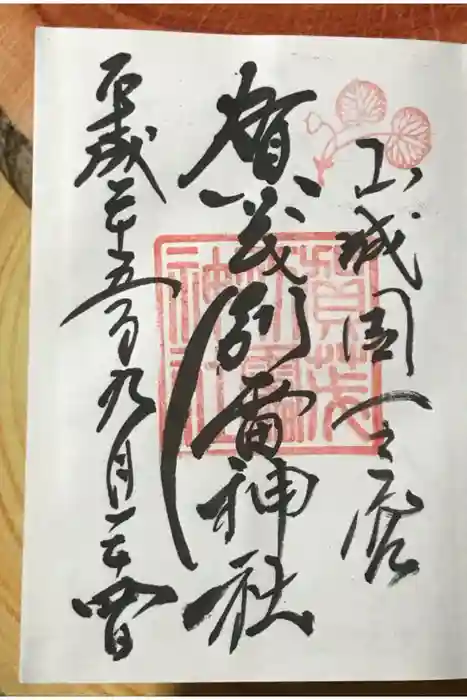 山城国一之宮
賀茂別雷神社
平成二十五年九月二十四日
賀茂
別雷
神社